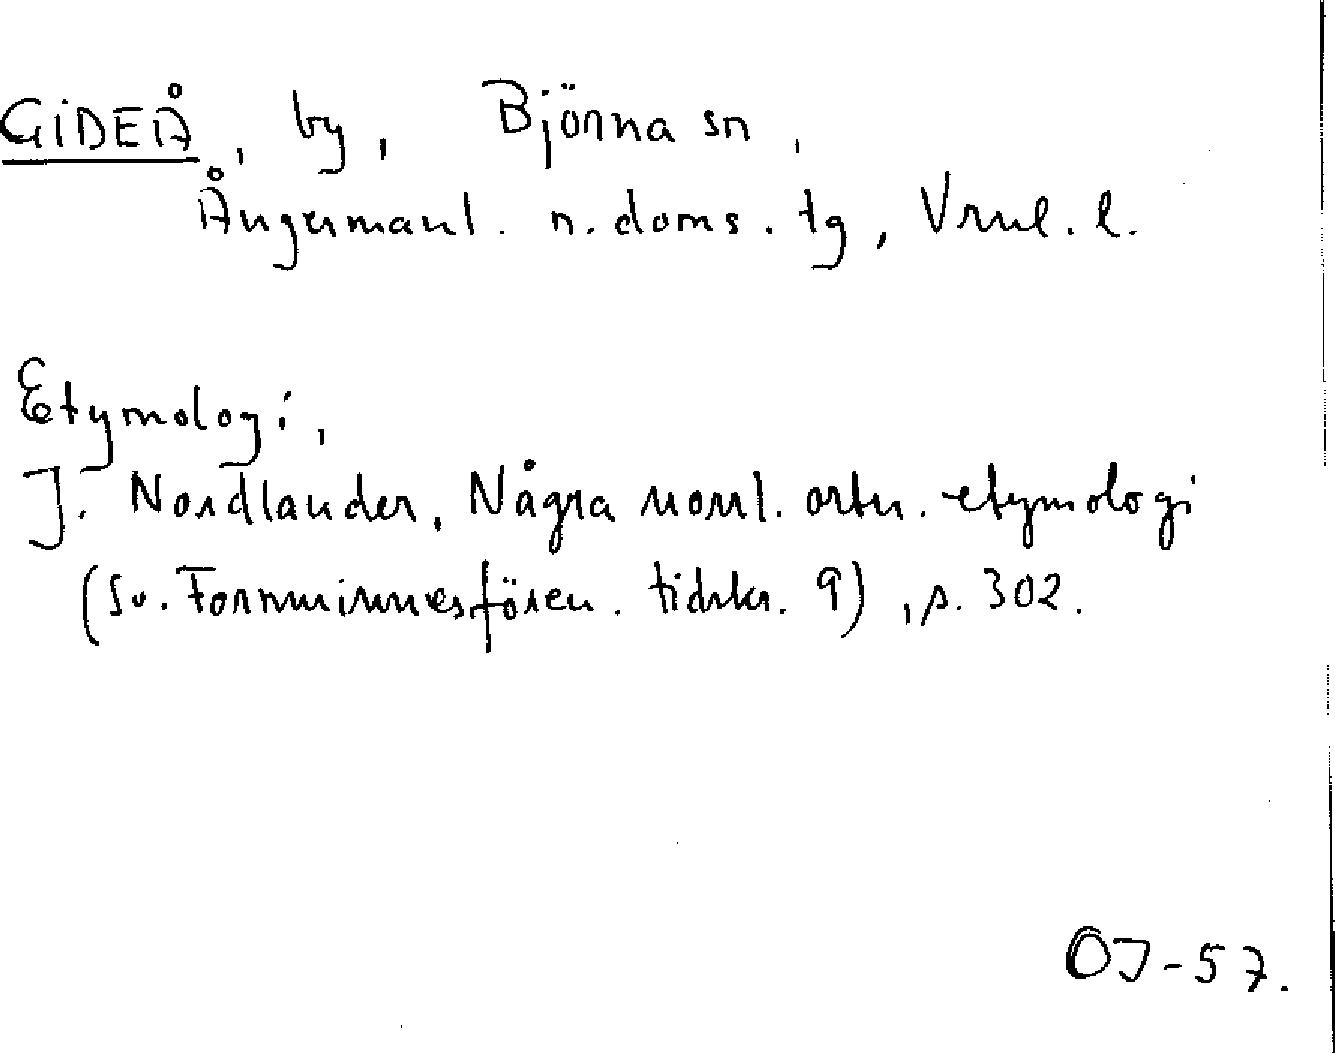 GIDEÅ, by, Björna sn,
Ångermanl. n. doms. tg, Vrnl. l.
Etymologi,
J. Nordlander, Några norrl. ortn. etymologi
(Sv. Fornminnesfören. tidskr. 9), s. 302.
OJ-57.